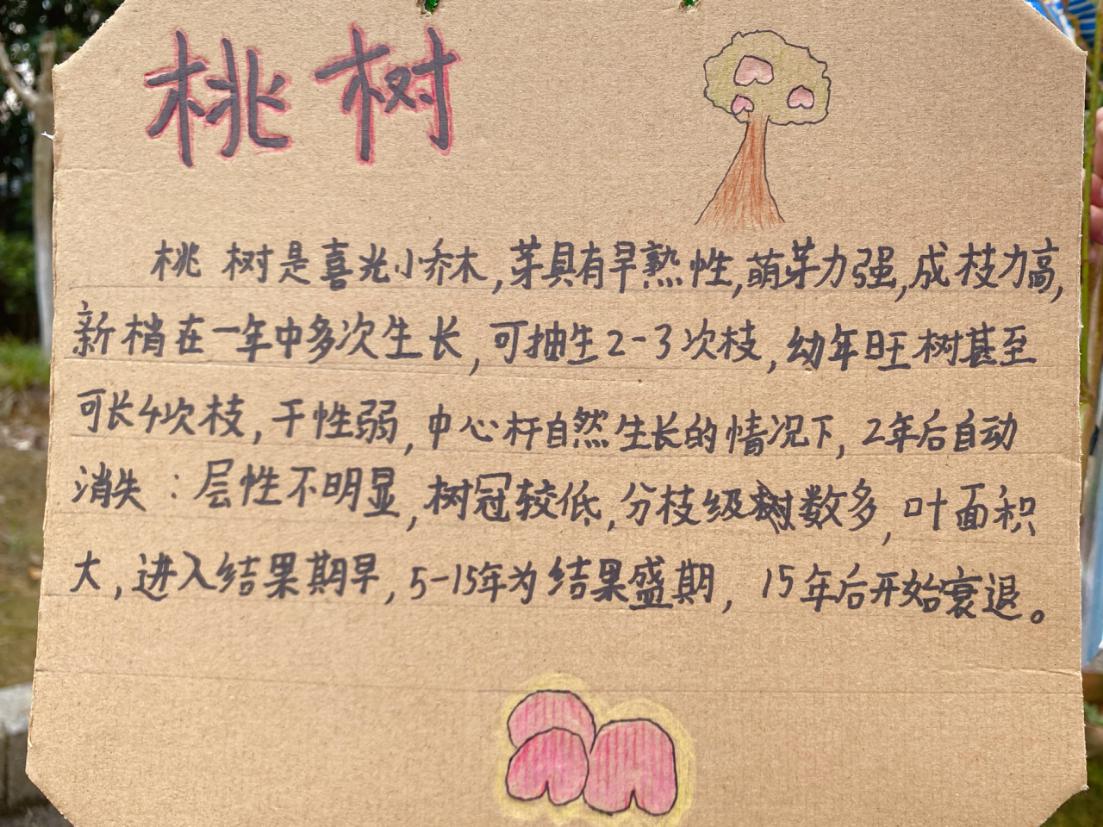 桃树
桃树是喜光小乔木,芽具有早熟性,萌芽力强,成枝力高,
新梢在一年中多次生长,可抽生2-3次枝,幼年旺树甚至
可长4次枝,干性弱,中心杆自然生长的情况下,2年后自动
消失:层性不明显,树冠较低,分枝级数多,叶面积
大,进入结果期早,5-15年为结果盛期,15年后开始衰退。